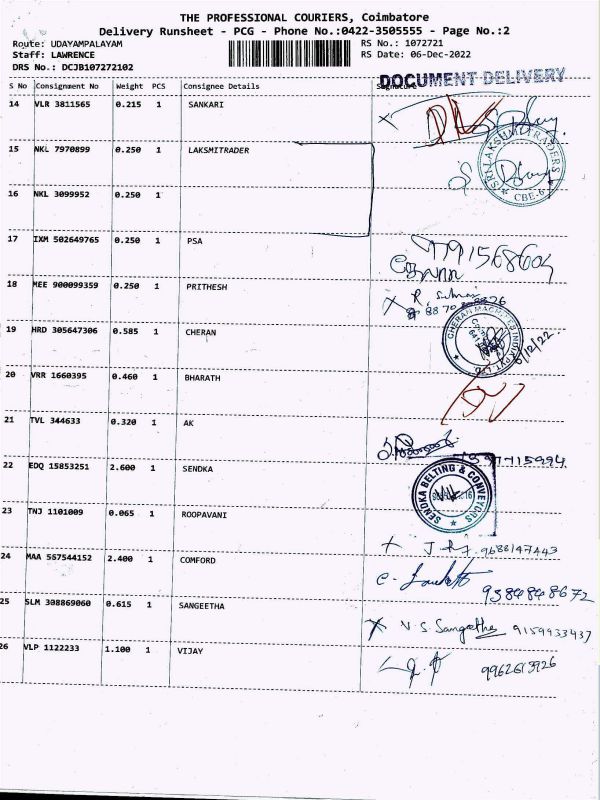 THE PROFESSIONAL COURIERS, Coimbatore
Delivery Runsheet - PCG - Phone No.:0422-3505555 - Page No.:2
Route: UDAYAMPALAYAM RS No.: 1072721
Staff: LAWRENCE RS Date: 06-Dec-2022
DRS No.: DCJB107272102
DOCUMENT DELIVERY
S No Consignment No Weight PCS Consignee Details Signature
14 VLR 3811565 0.215 1 SANKARI
15 NKL 7970899 0.250 1 LAKSMITRADER
SRI LAKSHMI TRADERS
CBE-6
16 NKL 3099952 0.250 1
17 IXM 502649765 0.250 1 PSA
7791568604
18 MEE 900099359 0.250 1 PRITHESH
19 HRD 305647306 0.585 1 CHERAN
6/12/22
20 VRR 1660395 0.460 1 BHARATH
21 TVL 344633 0.320 1 AK
22 EDQ 15853251 2.600 1 SENDKA
SENDKA BELTING & CONVEYORS
23 TNJ 1101009 0.065 1 ROOPAVANI
9688147443
24 MAA 567544152 2.400 1 COMFORD
9384848672
25 SLM 308869060 0.615 1 SANGEETHA
V. S. Sangeetha 9159933437
26 VLP 1122233 1.100 1 VIJAY
9962613926